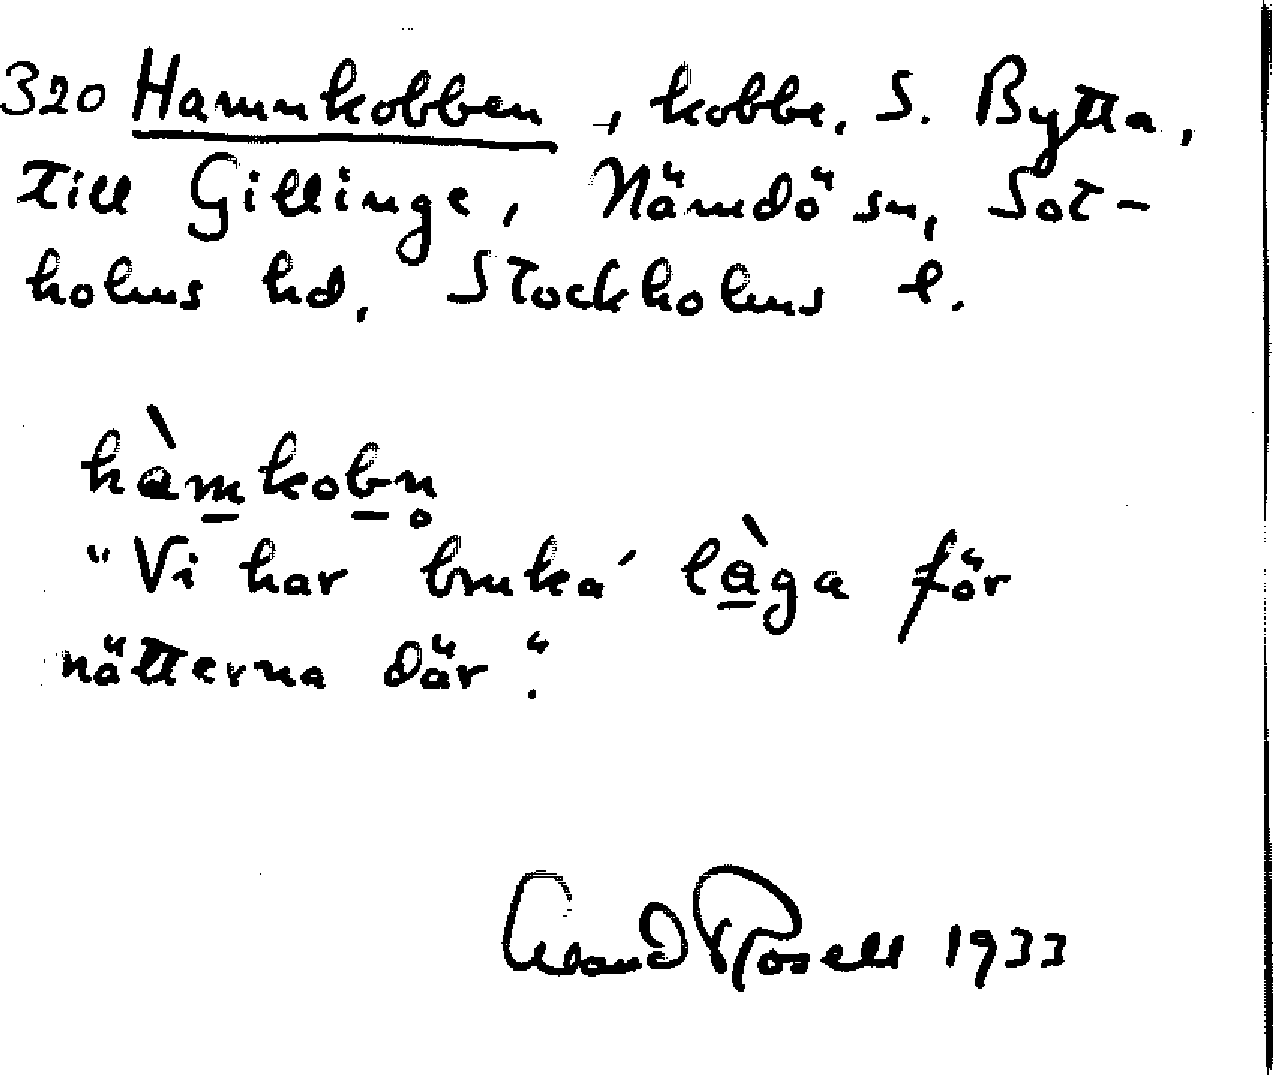 320 Hamnkobben, kobbe, S. Bytta,
till Gillinge, Nämdö sn, Sot-
holms hd, Stockholms l.
hàm̲kob̲n̥
"Vi har bruka' là̲ga för
nätterna där".
Rosell 1933